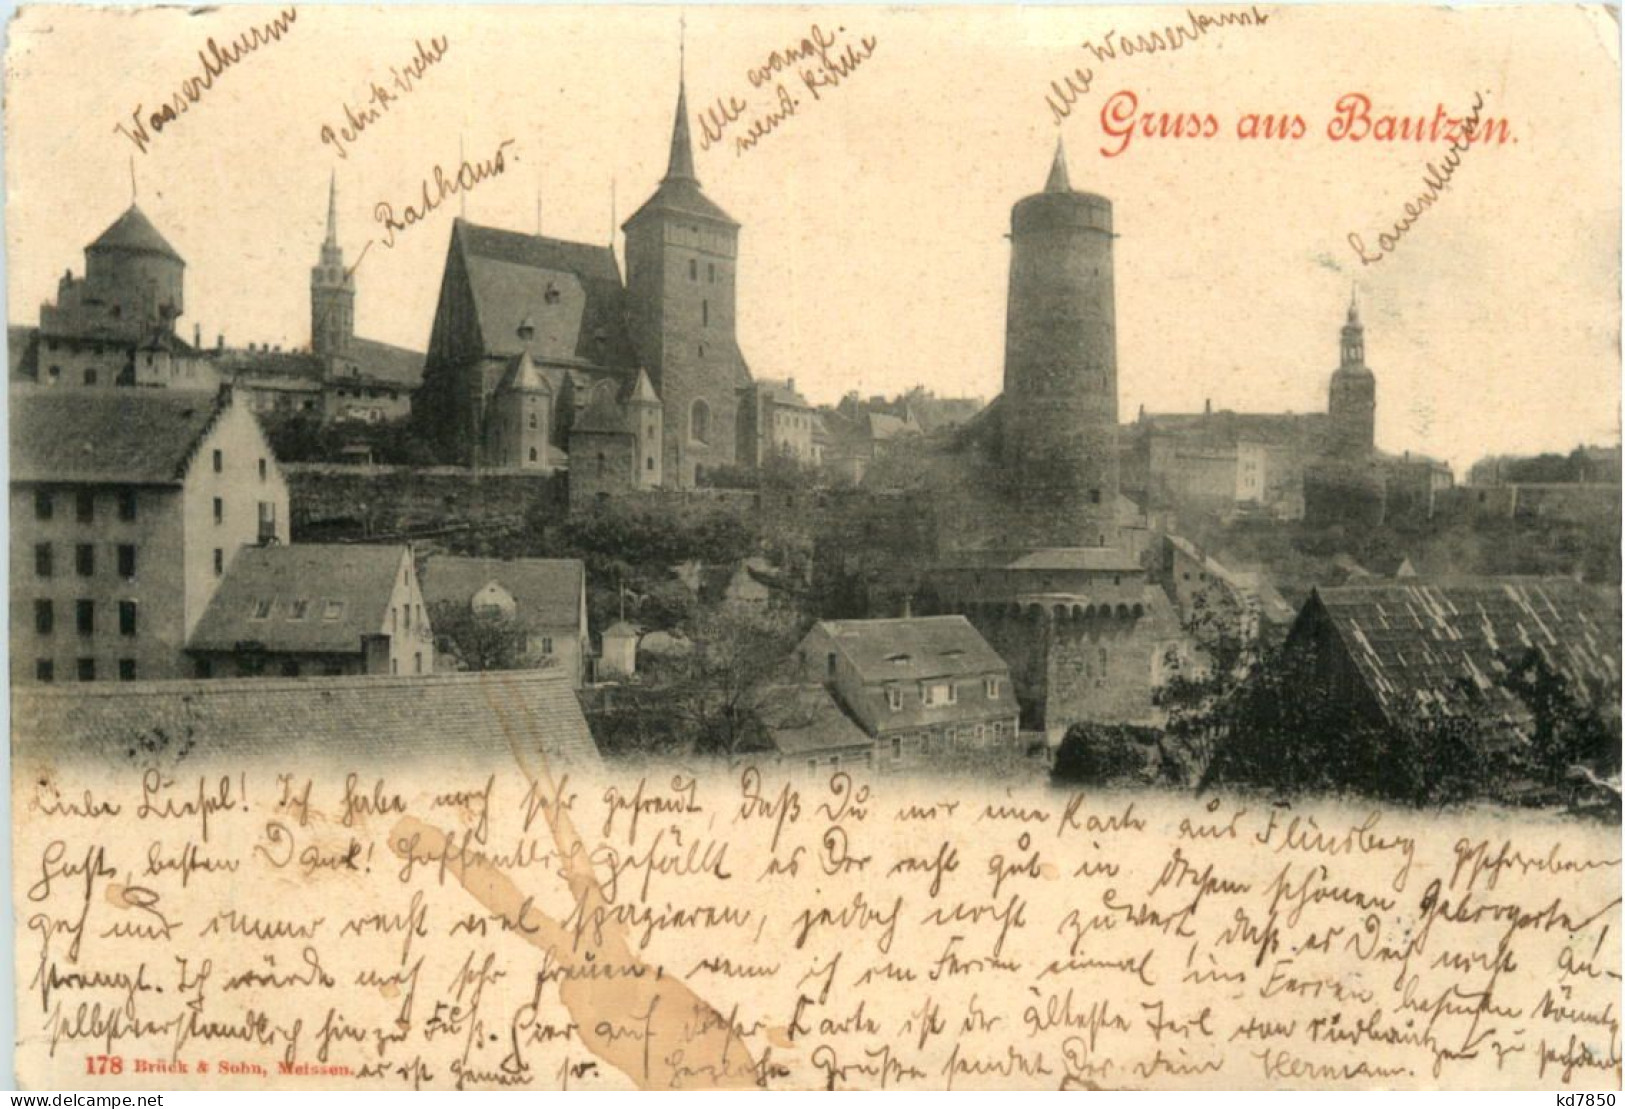 Wasserthurm
Petrikirche
Rathaus.
Alte evangl.
wend. Kirche
Alte Wasserkunst
Gruss aus Bautzen.
Lauenthurm.
Liebe Liesel! Ich habe mich sehr gefreut, daß Du mir eine Karte aus Flinsberg geschrieben
hast, besten Dank! Hoffentlich gefällt es Dir recht gut in diesem schönen Gebirgsorte,
geh nur immer recht viel spazieren, jedoch nicht zu weit, daß es Dich nicht an-
strengt. Ich würde mich sehr freuen, wenn ich in Ferien einmal besuchen könnte
selbstverständlich hin zu Fuß. Hier auf dieser Karte ist der älteste Teil von Budbautzen zu sehen
178 Brück & Sohn, Meissen. es ist genau so. Herzliche Grüße sendet Dir Dein Hermann.
kd7850